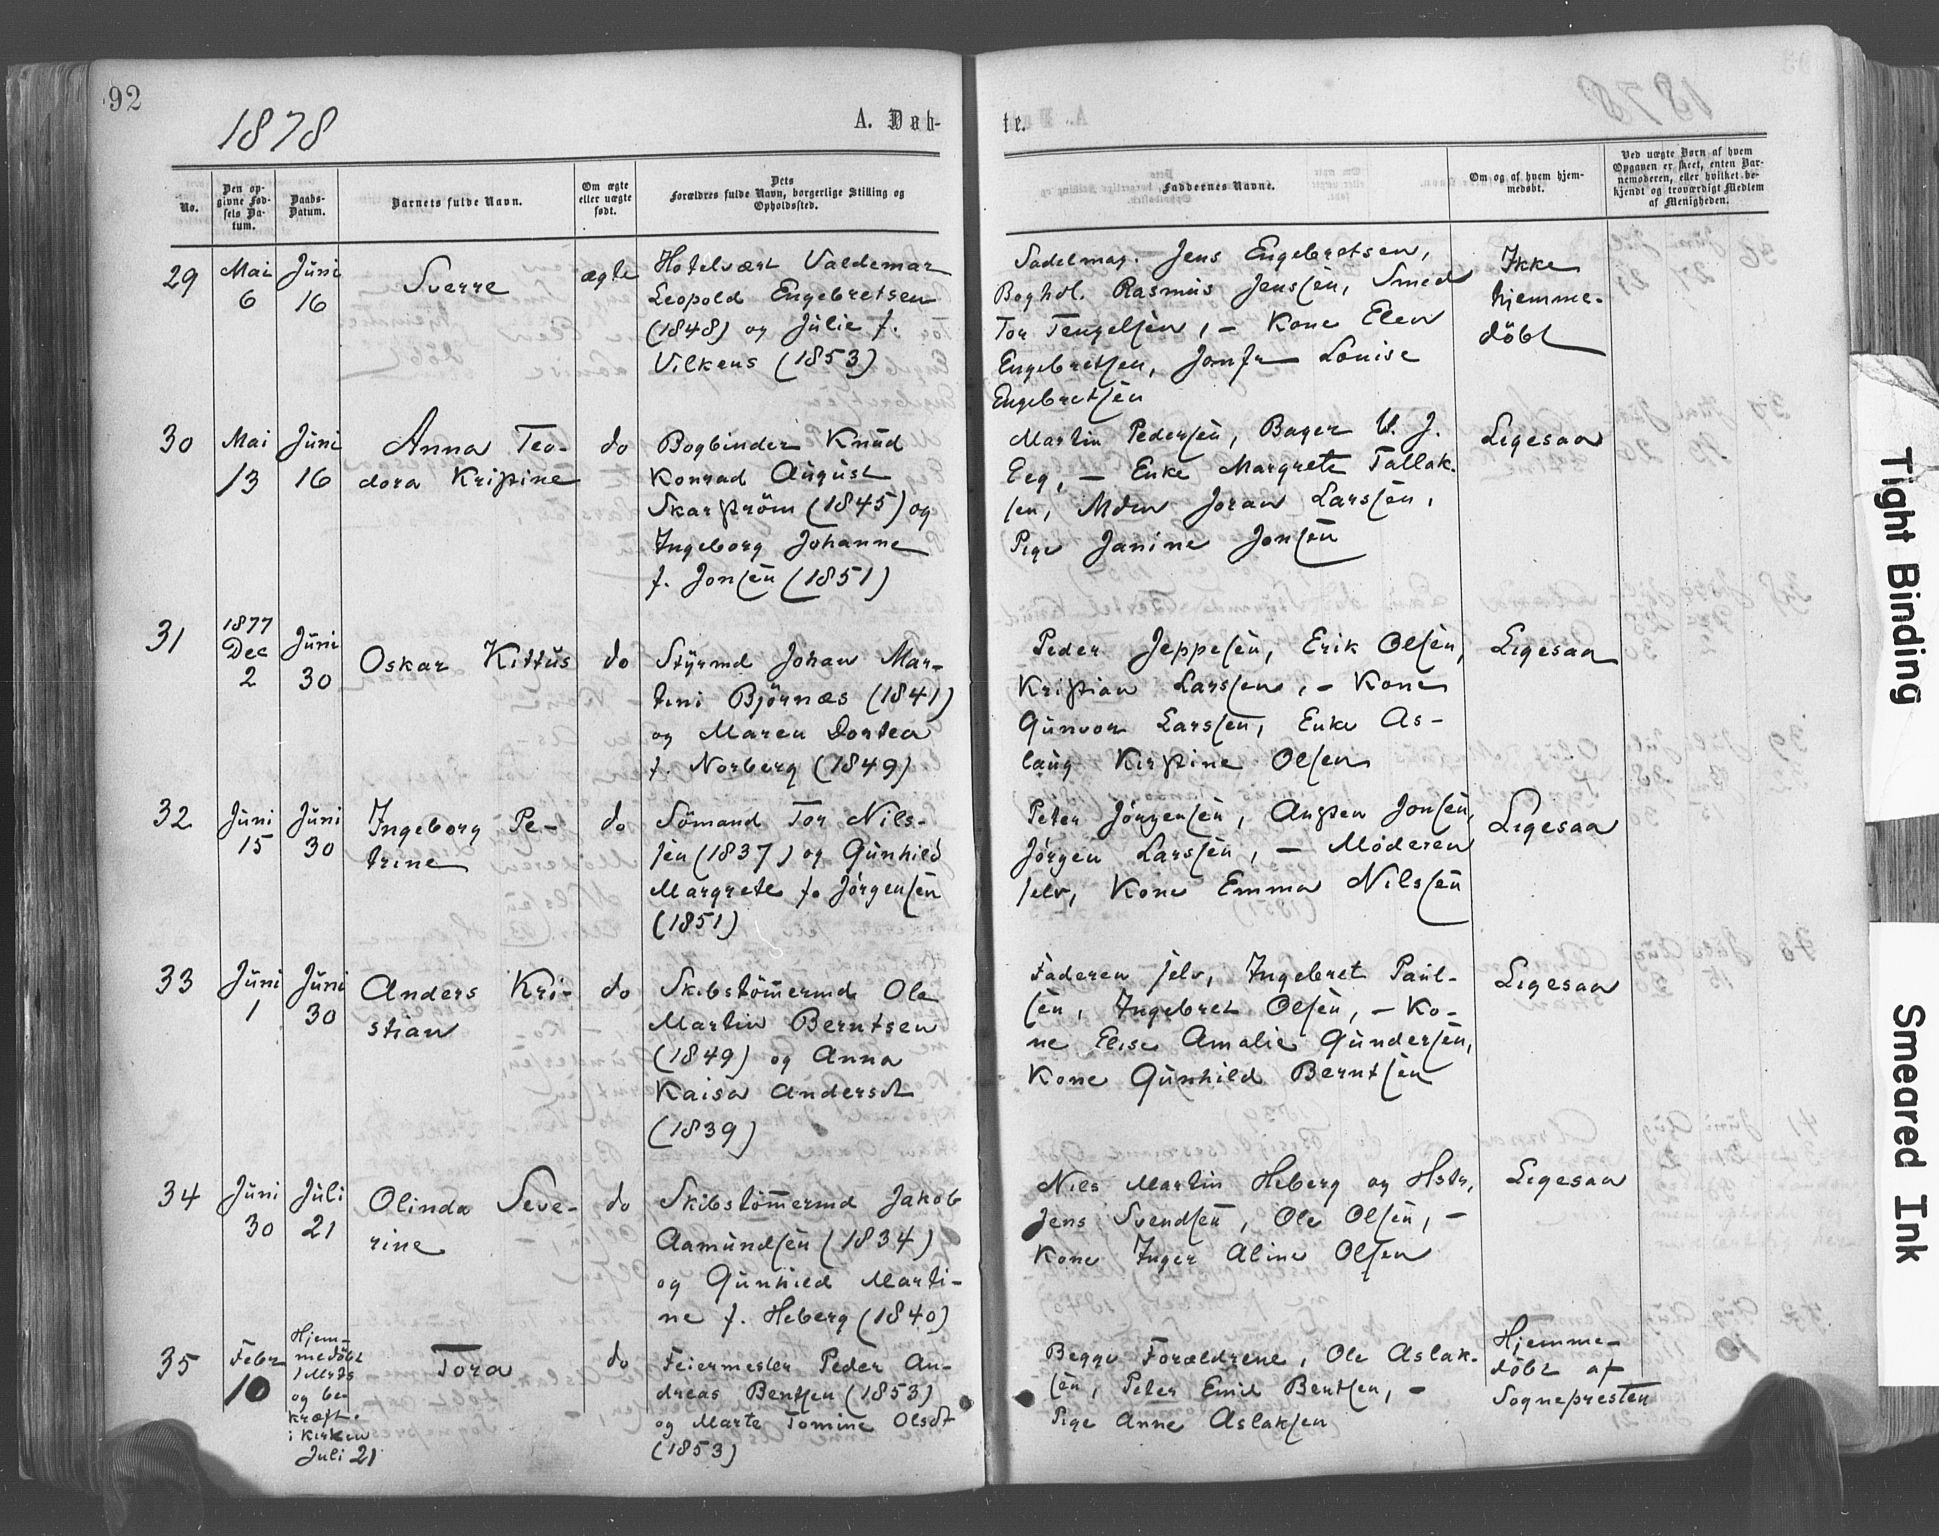 92
1878
A. Dåb-
te.
No.
Den op-
givne Fød-
sels Da-
tum.
Daabs-
Datum.
Barnets fulde Navn.
Om ægte
eller uægte
født.
Dets
Forældres fulde Navn, borgerlige Stilling og
Opholdssted.
Faddernes Navne.
Om og af hvem hjem-
medøbt.
Ved uægte Børn af hvem
Opgaven er skeet, enten Bar-
nemoderen, eller hvilket be-
kjendt og troværdigt Medlem
af Menigheden.
29
Mai
6
Juni
16
Sverre
ægte
Hotelvært Valdemar
Leopold Engebretsen
(1848) og Julie f.
Vilkens (1853)
Sadelmag. Jens Engebretsen,
Boghol. Rasmus Jenssen, Smed
Tor Tengelsen, – Kone Elen
Engebretsen, Jomfr Louise
Engebretsen
Ikke
hjemme-
döbt
30
Mai
13
Juni
16
Anna Teo-
dora Kristine
do
Bogbinder Knud
Konrad August
Skarström (1845) og
Ingeborg Johanne
f. Jonsen (1851)
Martin Pedersen, Bager U. J.
Eeg, – Enke Margrete Tallak-
sen, Mdm Joran Larssen,
Pige Janine Jonsen
Ligesaa
31
1877
Dec
2
Juni
30
Oskar Kittus
do
Styrmd Johan Mar-
tini Björnæs (1841)
og Maren Dortea
f. Norberg (1849)
Peder Jeppesen, Erik Olsen,
Kristian Larssen, – Kone
Gunvor Larssen, Enke As-
laug Kirstine Olsen
Ligesaa
32
Juni
15
Juni
30
Ingeborg Pe-
trine
do
Sömand Tor Nils-
sen (1837) og Gunhild
Margrete f. Jörgensen
(1851)
Peter Jörgensen, Austen Jonsen,
Jörgen Larssen, – Möderen
selv, Kone Emma Nilssen
Ligesaa
33
Juni
1
Juni
30
Anders Kri-
stian
do
Skibstömermd Ole
Martin Berntsen
(1849) og Anna
Kaisa Andersdt
(1839)
Faderen selv, Ingebret Paul-
sen, Ingebret Olsen, – Ko-
ne Elise Amalie Gundersen,
Kone Gunhild Berntsen
Ligesaa
34
Juni
30
Juli
21
Olinda Seve-
rine
do
Skibstömermd Jakob
Aamundsen (1834)
og Gunhild Marti-
ne f. Heberg (1840)
Nils Martin Heberg og Hstr,
Jens Svendsen, Ole Olsen, –
Kone Inger Aline Olsen
Ligesaa
35
Febr
10
Hjem-
medöbt
1 Mrts
og be-
kræft.
i kirken
Juli 21
Tora
do
Feiermester Peder An-
dreas Bentsen (1853)
og Marte Tomine Olsdt
(1853)
Begge Forældrene, Ole Aslak-
sen, Peter Emil Bentsen, –
Pige Anne Aslaksen
Hjemme-
döbt af
Sognepresten
Tight Binding
Smeared Ink